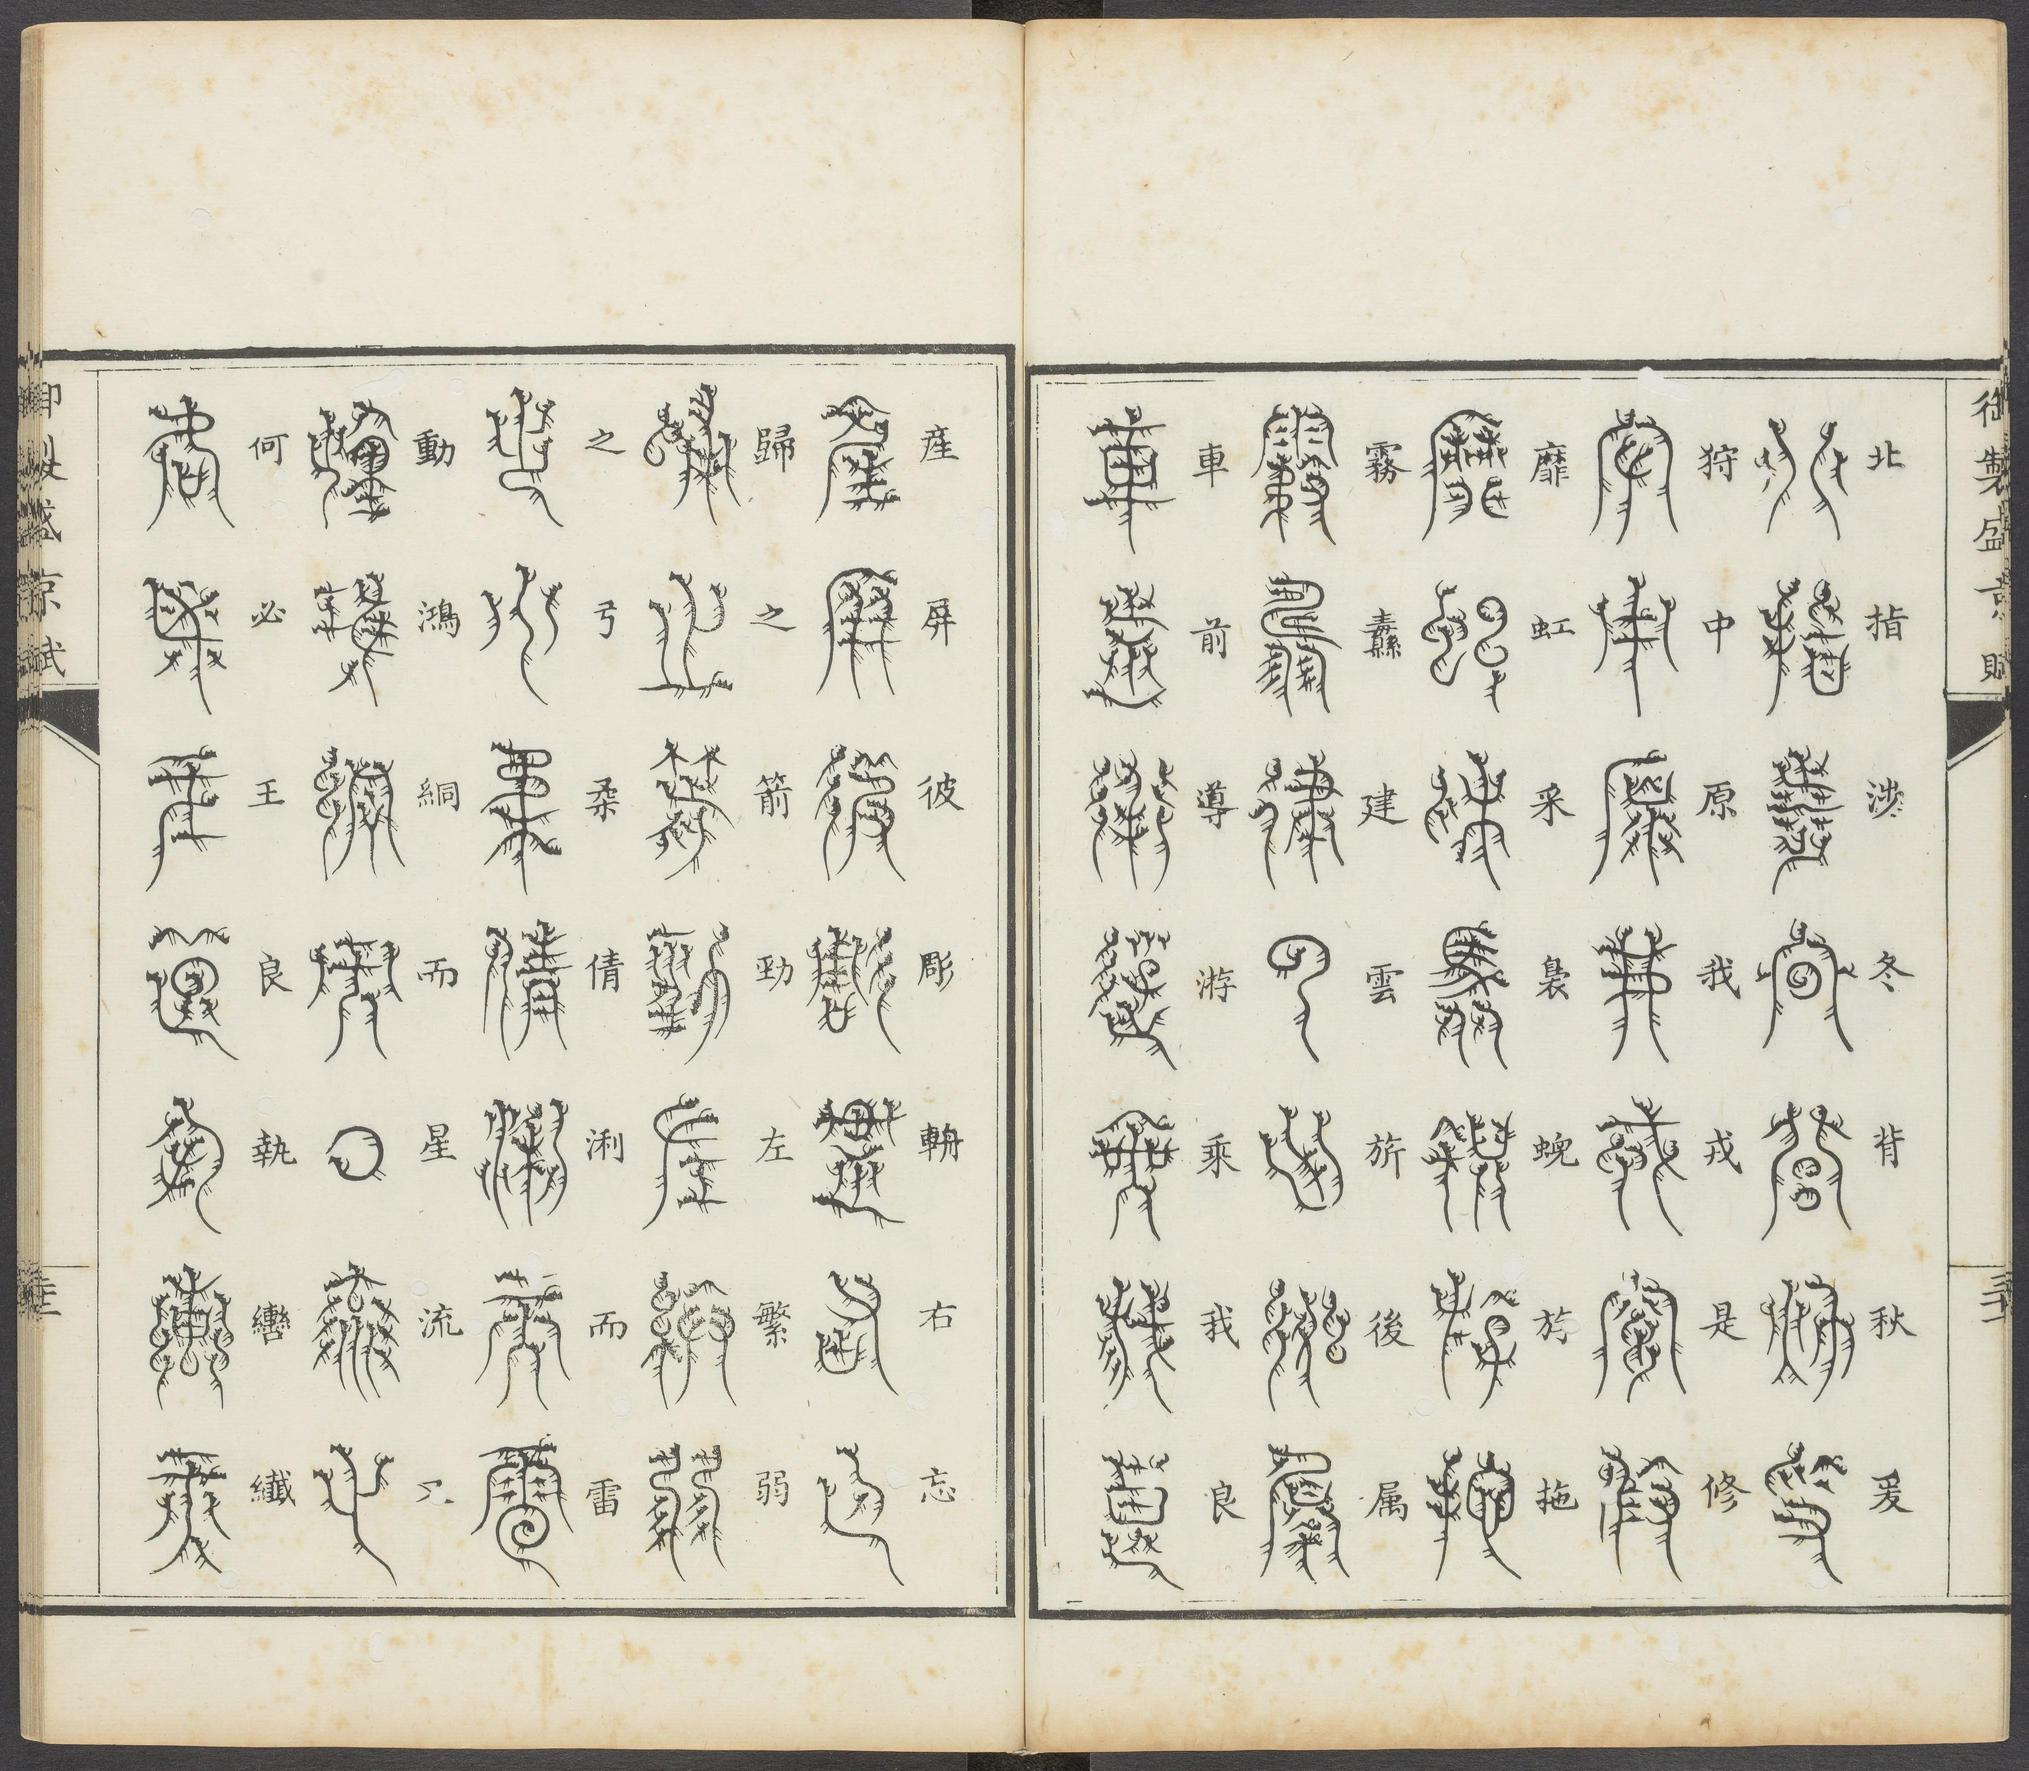 御製盛京賦
北指涉冬背秋爰
狩中原我戎是修
靡虹采裊蜺拖
霧纛建雲旂後属
車前導游乘我良
産屏彼彫軿右忘
歸之箭勁左繁弱
之弓柔倩浰而雷
動鴻絧而星流
何必王良執轡纖
御製盛京賦